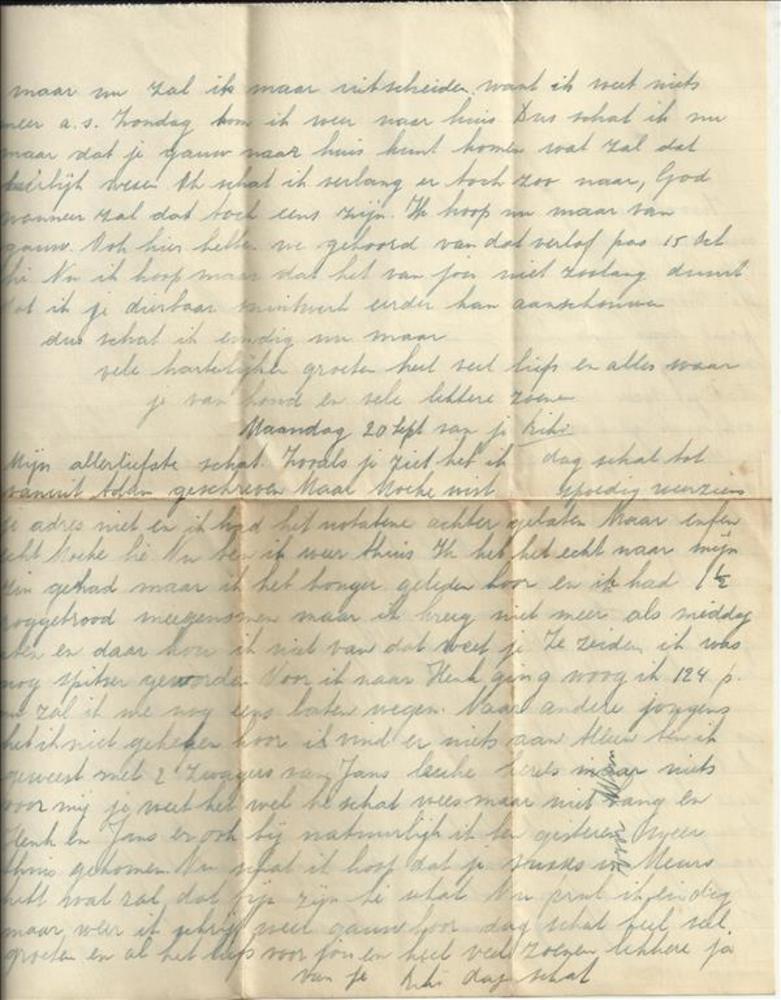 maar nu zal ik maar uitscheiden want ik weet niets
meer a.s. Zondag kom ik weer naar huis Dus schat ik nu
maar dat je gauw naar huis kunt komen wat zal dat
heerlijk wesen Oh schat ik verlang er toch zoo naar, God
wanneer zal dat toch eens zijn. Ik hoop nu maar van
gauw. Ook hier hebben we gehoord van dat verlof pas 15 Oct
hè Nu ik hoop maar dat het van jou niet zoolang duurt
dat ik je dierbaar eerder kan aanschouwen
dus schat ik eindig nu maar
vele hartelijke groeten heel veel liefs en alles waar
je van houd en vele lekkere zoenen
Maandag 20 Sept van je Riki
dag schat tot
spoedig weerziens
Mijn allerliefste schat Zooals je ziet heb ik
vanuit geschreven Maar wist
je adres niet en ik had het achter gelaten Maar enfin
echt hè Nu ben ik weer thuis Ik heb het echt naar mijn
zin gehad maar ik heb honger geleden hoor en ik had 1½
roggebrood meegenomen maar ik kreeg niet meer als middag
eten en daar hou ik niet van dat weet je Ze zeiden ik was
nog spitser geworden Voor ik naar Henk ging woog ik 124 p.
nu zal ik me nog eens laten wegen. Naar andere jongens
heb ik niet gekeken hoor ik vind er niets aan Alleen ben ik
geweest met 2 zwagers van Jans leuke maar niets
voor mij je weet het wel hè schat wees maar niet bang en
Henk en Jans er ook bij natuurlijk ik ben gisteren weer
thuis gekomen Nu schat ik hoop dat je nieuws
hebt wat zal dat fijn zijn hè schat Nu ik eindig
maar weer ik schrijf weer gauw hoor dag schat heel veel
groeten en al het liefs voor jou en heel veel zoenen lekkere ja
van je Riki dag schat